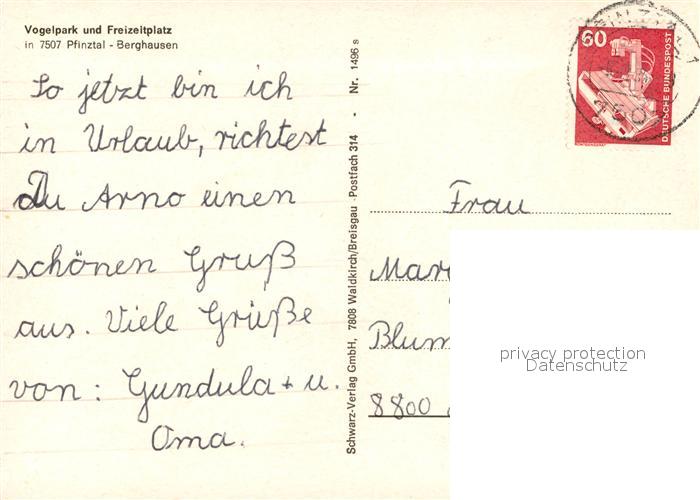 Vogelpark und Freizeitplatz
in 7507 Pfinztal - Berghausen
So jetzt bin ich
in Urlaub, richtest
Du Arno einen
schönen Gruß
aus. Viele Grüße
von: Gundula + u.
Oma.
Schwarz-Verlag GmbH, 7808 Waldkirch/Breisgau · Postfach 314 · Nr. 1496 s
60
DEUTSCHE BUNDESPOST
Frau
Blum
8800
privacy protection
Datenschutz